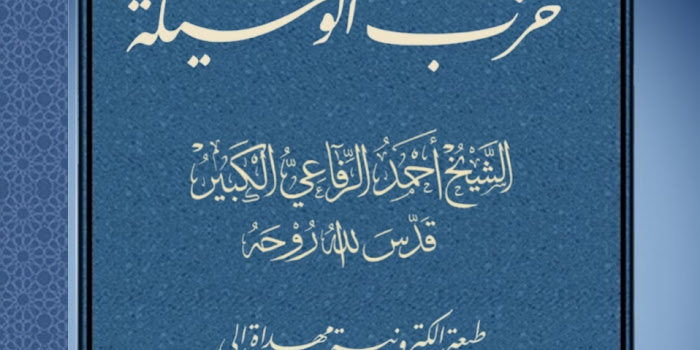 حزب الوسيلة
الشَّيْخُ أَحْمَدُ الرِّفَاعِيُّ الْكَبِيرُ
قَدَّسَ اللهُ رُوْحَهُ
طبعة إلكترونية مهداة إلى